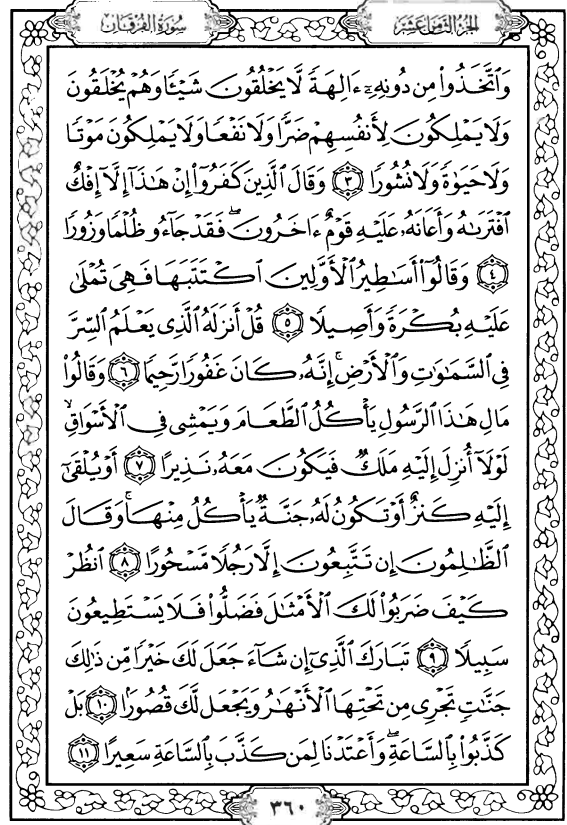 سُورَةُ الفُرْقَانِ
الجُزْءُ الثَّامِنَ عَشَرَ
وَٱتَّخَذُوا۟ مِن دُونِهِۦٓ ءَالِهَةً لَّا يَخْلُقُونَ شَيْـًٔا وَهُمْ يُخْلَقُونَ
وَلَا يَمْلِكُونَ لِأَنفُسِهِمْ ضَرًّا وَلَا نَفْعًا وَلَا يَمْلِكُونَ مَوْتًا
وَلَا حَيَوٰةً وَلَا نُشُورًا ٣ وَقَالَ ٱلَّذِينَ كَفَرُوٓا۟ إِنْ هَـٰذَآ إِلَّآ إِفْكٌ
ٱفْتَرَىٰهُ وَأَعَانَهُۥ عَلَيْهِ قَوْمٌ ءَاخَرُونَ ۖ فَقَدْ جَآءُو ظُلْمًا وَزُورًا
٤ وَقَالُوٓا۟ أَسَـٰطِيرُ ٱلْأَوَّلِينَ ٱكْتَتَبَهَا فَهِىَ تُمْلَىٰ
عَلَيْهِ بُكْرَةً وَأَصِيلًا ٥ قُلْ أَنزَلَهُ ٱلَّذِى يَعْلَمُ ٱلسِّرَّ
فِى ٱلسَّمَـٰوَٰتِ وَٱلْأَرْضِ ۚ إِنَّهُۥ كَانَ غَفُورًا رَّحِيمًا ٦ وَقَالُوا۟
مَالِ هَـٰذَا ٱلرَّسُولِ يَأْكُلُ ٱلطَّعَامَ وَيَمْشِى فِى ٱلْأَسْوَاقِ ۙ
لَوْلَآ أُنزِلَ إِلَيْهِ مَلَكٌ فَيَكُونَ مَعَهُۥ نَذِيرًا ٧ أَوْ يُلْقَىٰٓ
إِلَيْهِ كَنزٌ أَوْ تَكُونُ لَهُۥ جَنَّةٌ يَأْكُلُ مِنْهَا ۚ وَقَالَ
ٱلظَّـٰلِمُونَ إِن تَتَّبِعُونَ إِلَّا رَجُلًا مَّسْحُورًا ٨ ٱنظُرْ
كَيْفَ ضَرَبُوا۟ لَكَ ٱلْأَمْثَـٰلَ فَضَلُّوا۟ فَلَا يَسْتَطِيعُونَ
سَبِيلًا ٩ تَبَارَكَ ٱلَّذِىٓ إِن شَآءَ جَعَلَ لَكَ خَيْرًا مِّن ذَٰلِكَ
جَنَّـٰتٍ تَجْرِى مِن تَحْتِهَا ٱلْأَنْهَـٰرُ وَيَجْعَل لَّكَ قُصُورًۢا ١٠ بَلْ
كَذَّبُوا۟ بِٱلسَّاعَةِ ۖ وَأَعْتَدْنَا لِمَن كَذَّبَ بِٱلسَّاعَةِ سَعِيرًا ١١
٣٦٠